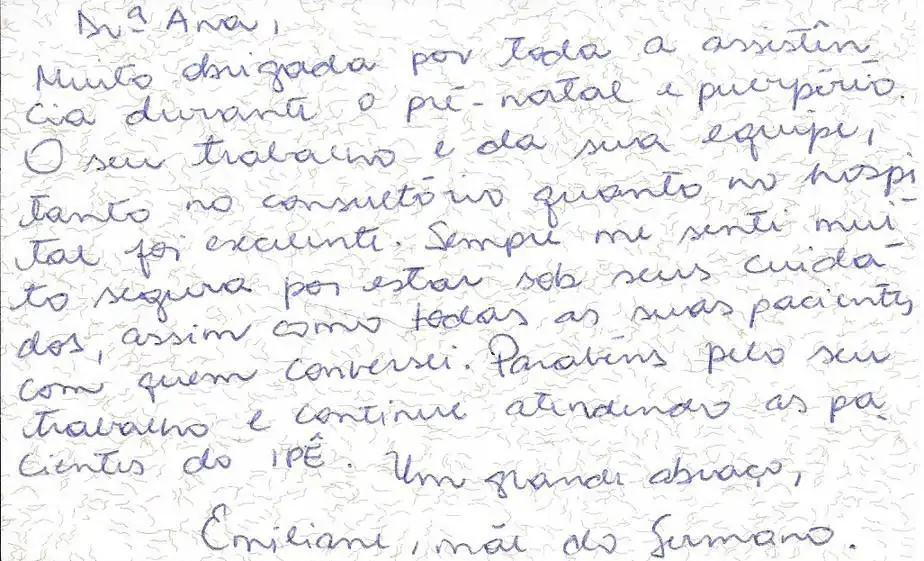 Drª Ana,
Muito obrigada por toda a assistên
cia durante o pré-natal e puerpério.
O seu trabalho e da sua equipe,
tanto no consultório quanto no hospi
tal foi excelente. Sempre me senti mui-
to segura por estar sob seus cuida-
dos, assim como todas as suas pacientes
com quem conversei. Parabéns pelo seu
trabalho e continue atendendo as pa-
cientes do IPÊ. Um grande abraço,
Emiliane, mãe do Germano.